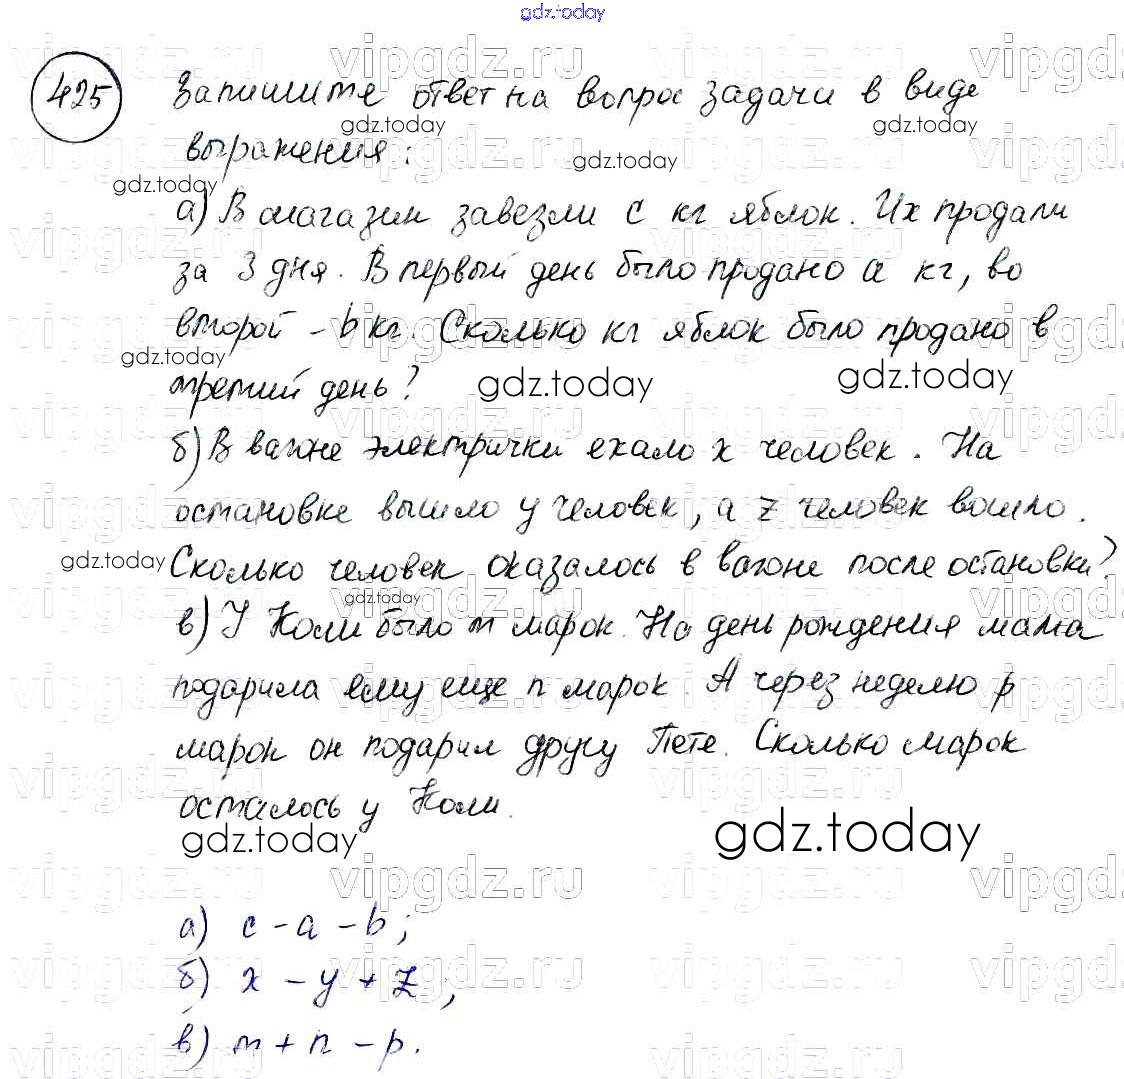 gdz.today
425 Запишите ответ на вопрос задачи в виде
выражения:
а) В магазин завезли c кг яблок. Их продали
за 3 дня. В первый день было продано a кг, во
второй - b кг. Сколько кг яблок было продано в
третий день?
б) В вагоне электрички ехало x человек. На
остановке вышло y человек, а z человек вошло.
Сколько человек оказалось в вагоне после остановки?
в) У Коли было m марок. На день рождения мама
подарила ему еще n марок. А через неделю p
марок он подарил другу Пете. Сколько марок
осталось у Коли.
gdz.today gdz.today
а) c - a - b;
б) x - y + z;
в) m + n - p.